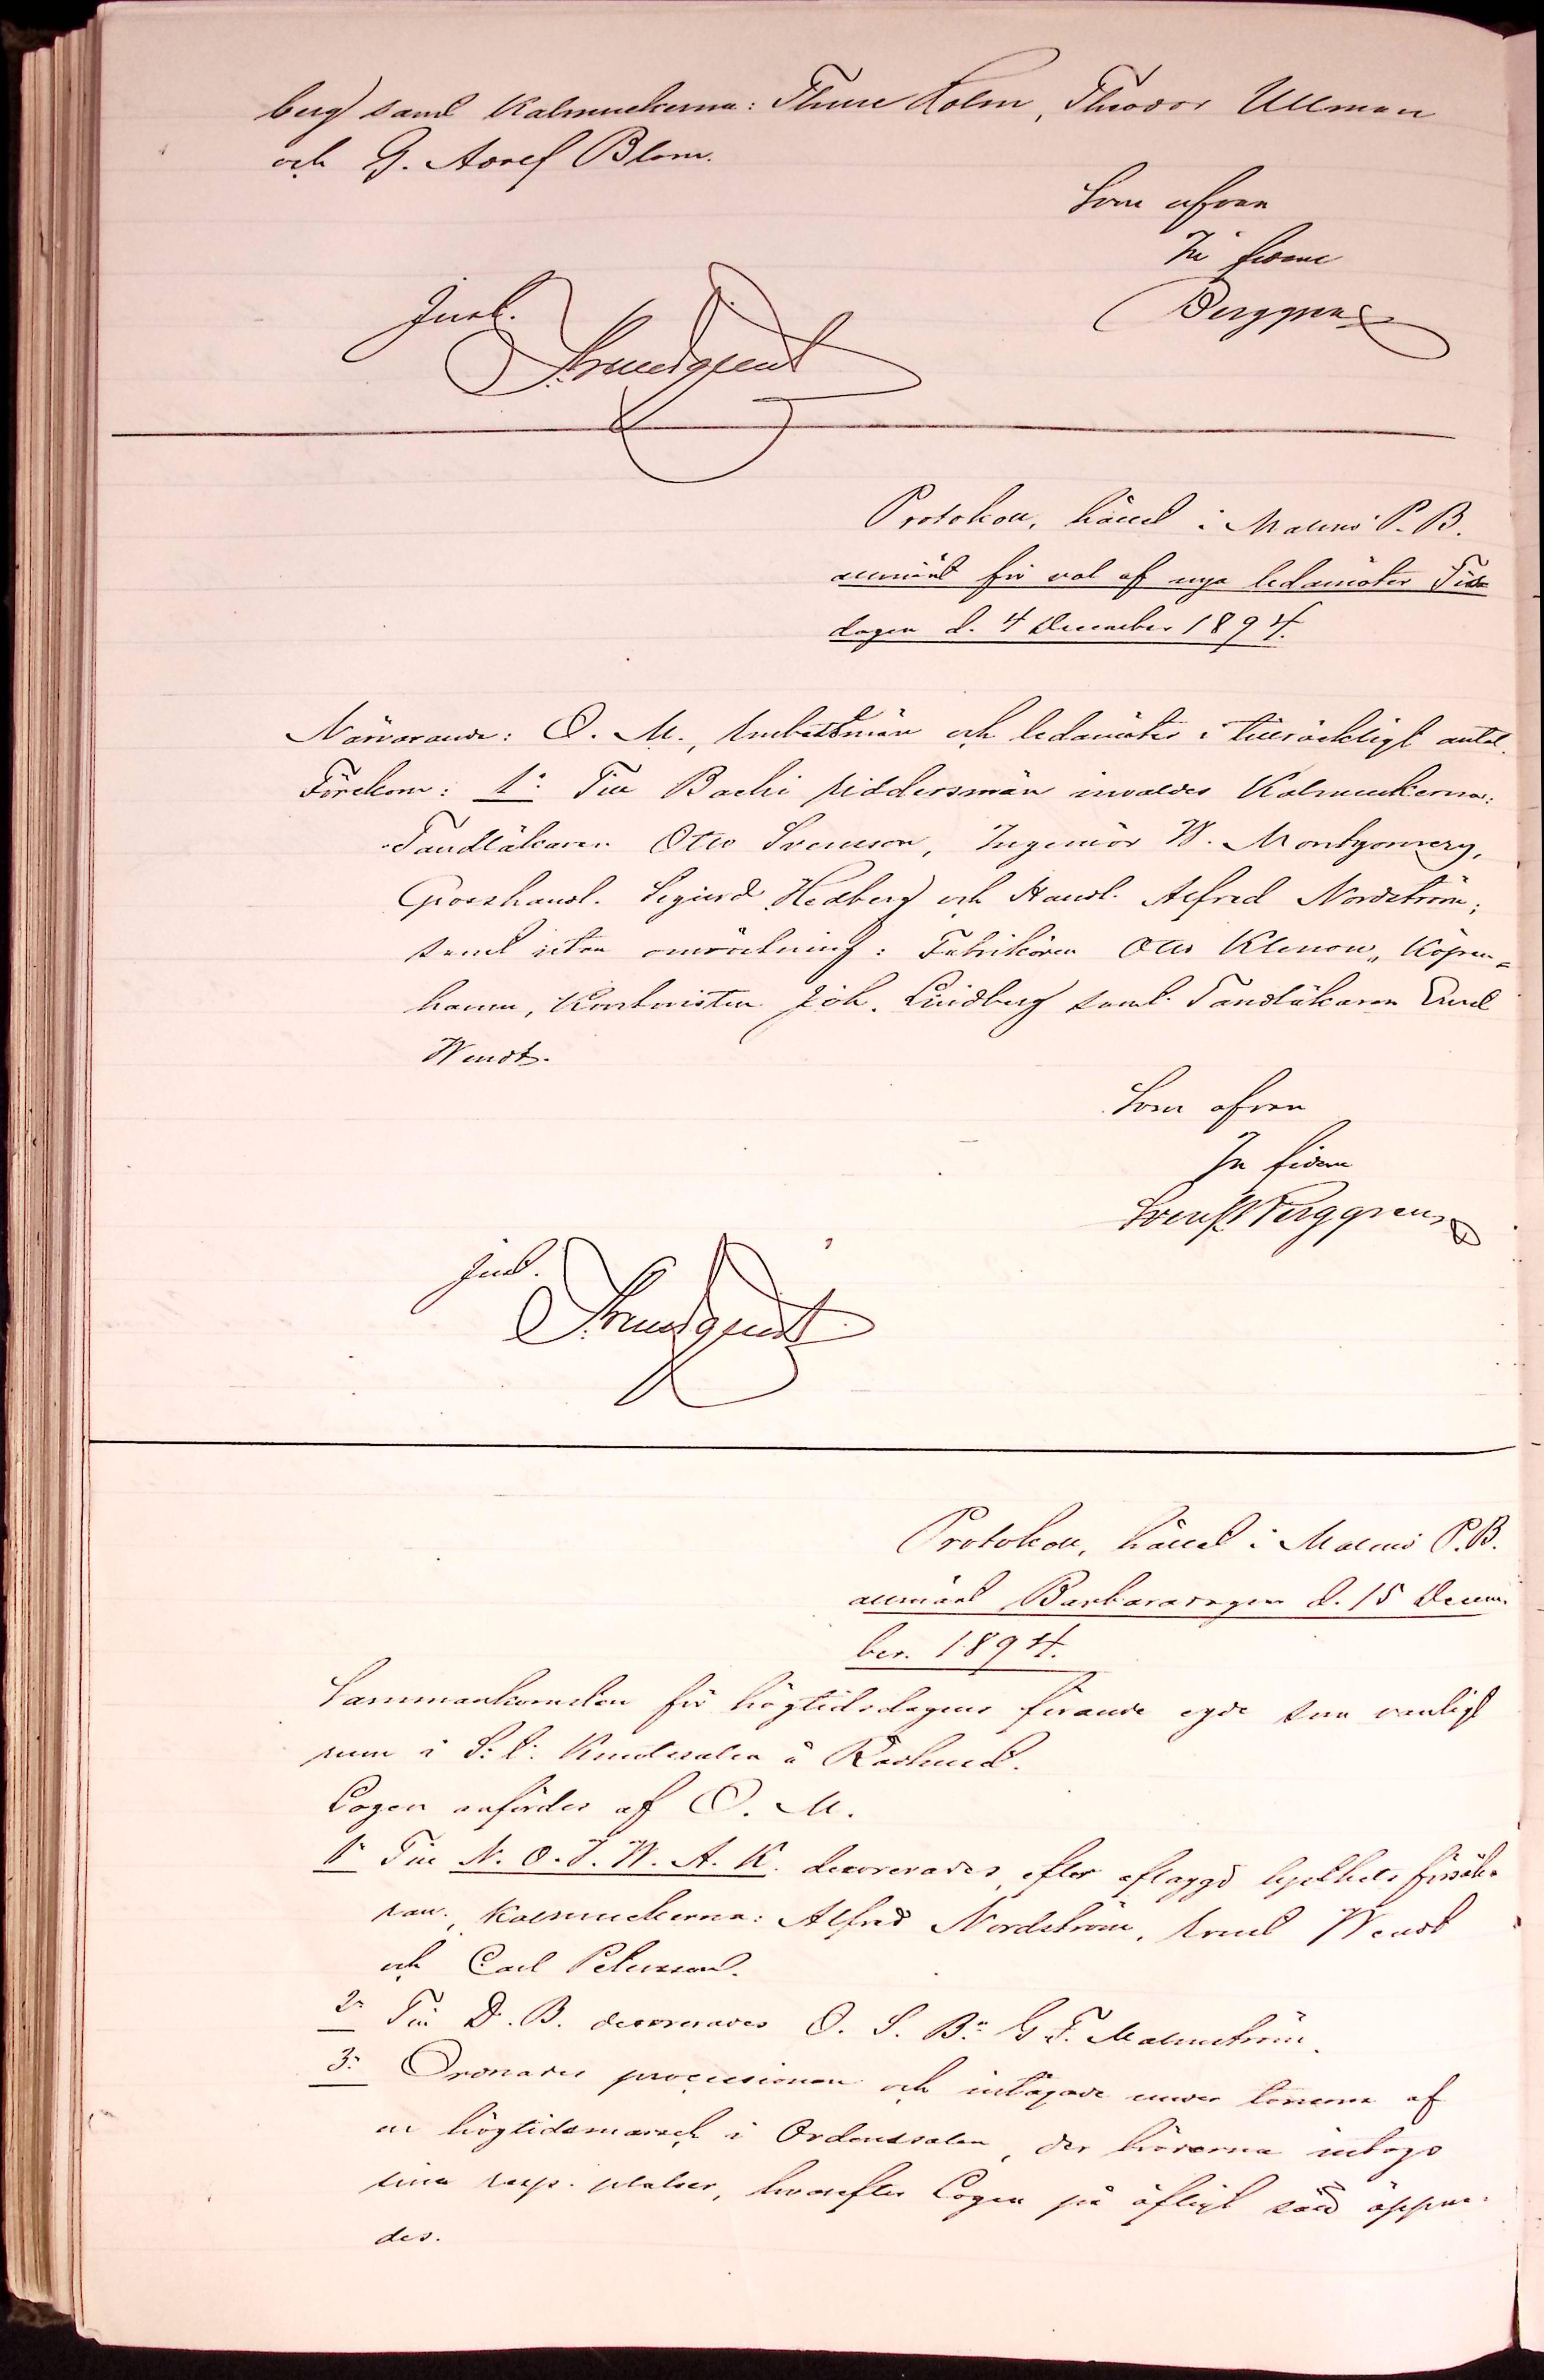 berg samt Kalmuckerna: Thure Holm, Theodor Ullman
och G. Adolf Blom.
Som ofvan
In fidem
Berggren
Just.
Protokoll, hållet i Malmö P. B.
allmänt för val af nya ledamöter Tis-
dagen d. 4 December 1894.
Närvarande: O. M., Embetsmän och ledamöter i tillräckligt antal.
Förekom: 1º Till Bachi riddersmän invaldes Kalmuckerna:
Tandläkaren Otto Svensson, Ingeniör W. Montgomery,
Grosshandl. Sigurd Hedberg och Handl. Alfred Nordström;
samt utan omröstning: Fabrikören Otto Klenow, Köpen-
hamn, Kontoristen Joh. Lindberg samt Tandläkaren Ernst
Wendt.
Som ofvan
In fidem
Berggren
Just.
Protokoll, hållet i Malmö P. B.
allmänt Barbaradagen d. 15 Decem-
ber. 1894.
Sammankomsten för högtidsdagens firande egde som vanligt
rum i S:t Knutssalen å Rådhuset.
Logen anfördes af O. M.
1º Till N. O. I. W. A. K. decorerades, efter aflaggd tysthetsförsäk-
ran, Kalmuckerna: Alfred Nordström, Ernst Wendt
och Carl Petersson.
2º Till D. B. decorerades O. S. B:n G. F. Malmström.
3º Ordnades processionen och intågade under tonerna af
en högtidsmarsch i Ordenssalen, der bröderna intogo
sina resp. platser, hvarefter Logen på öfligt sätt öppna-
des.